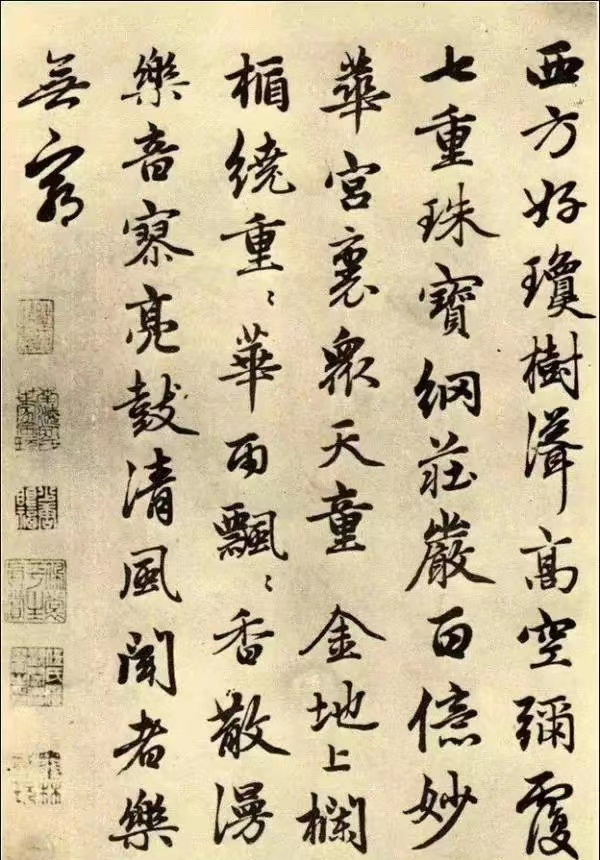 西方好瓊樹聳高空彌覆
七重珠寶網莊嚴百億妙
華宮裏衆天童金地上欄
楯繞重〻華雨飄〻香散漫
樂音寥亮鼓清風聞者樂
無窮